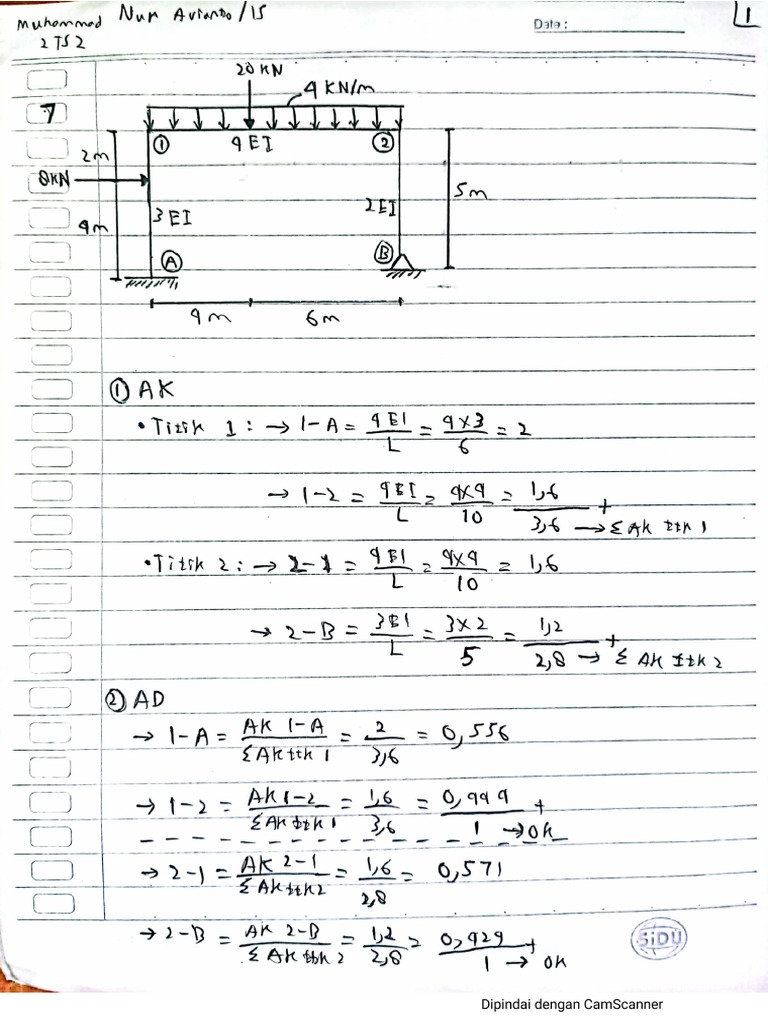 Muhammad Nur Avianto/15
2 TS 2
Date :
1
7
20 KN
4 KN/m
① 4EI ②
2m
8KN
5m
3EI 2EI
4m
Ⓐ Ⓑ
4m 6m
① AK
• Titik 1 : → 1-A = 4EI/L = 4x3/6 = 2
→ 1-2 = 4EI/L = 4x4/10 = 1,6 +
3,6 → Σ AK ttk 1
• Titik 2 : → 2-1 = 4EI/L = 4x4/10 = 1,6
→ 2-B = 3EI/L = 3x2/5 = 1,2 +
2,8 → Σ AK ttk 2
② AD
→ 1-A = AK 1-A/Σ AK ttk 1 = 2/3,6 = 0,556
→ 1-2 = AK 1-2/Σ AK ttk 1 = 1,6/3,6 = 0,444 +
1 → OK
→ 2-1 = AK 2-1/Σ AK ttk 2 = 1,6/2,8 = 0,571
→ 2-B = AK 2-B/Σ AK ttk 2 = 1,2/2,8 = 0,429 +
1 → OK
SiDU
Dipindai dengan CamScanner